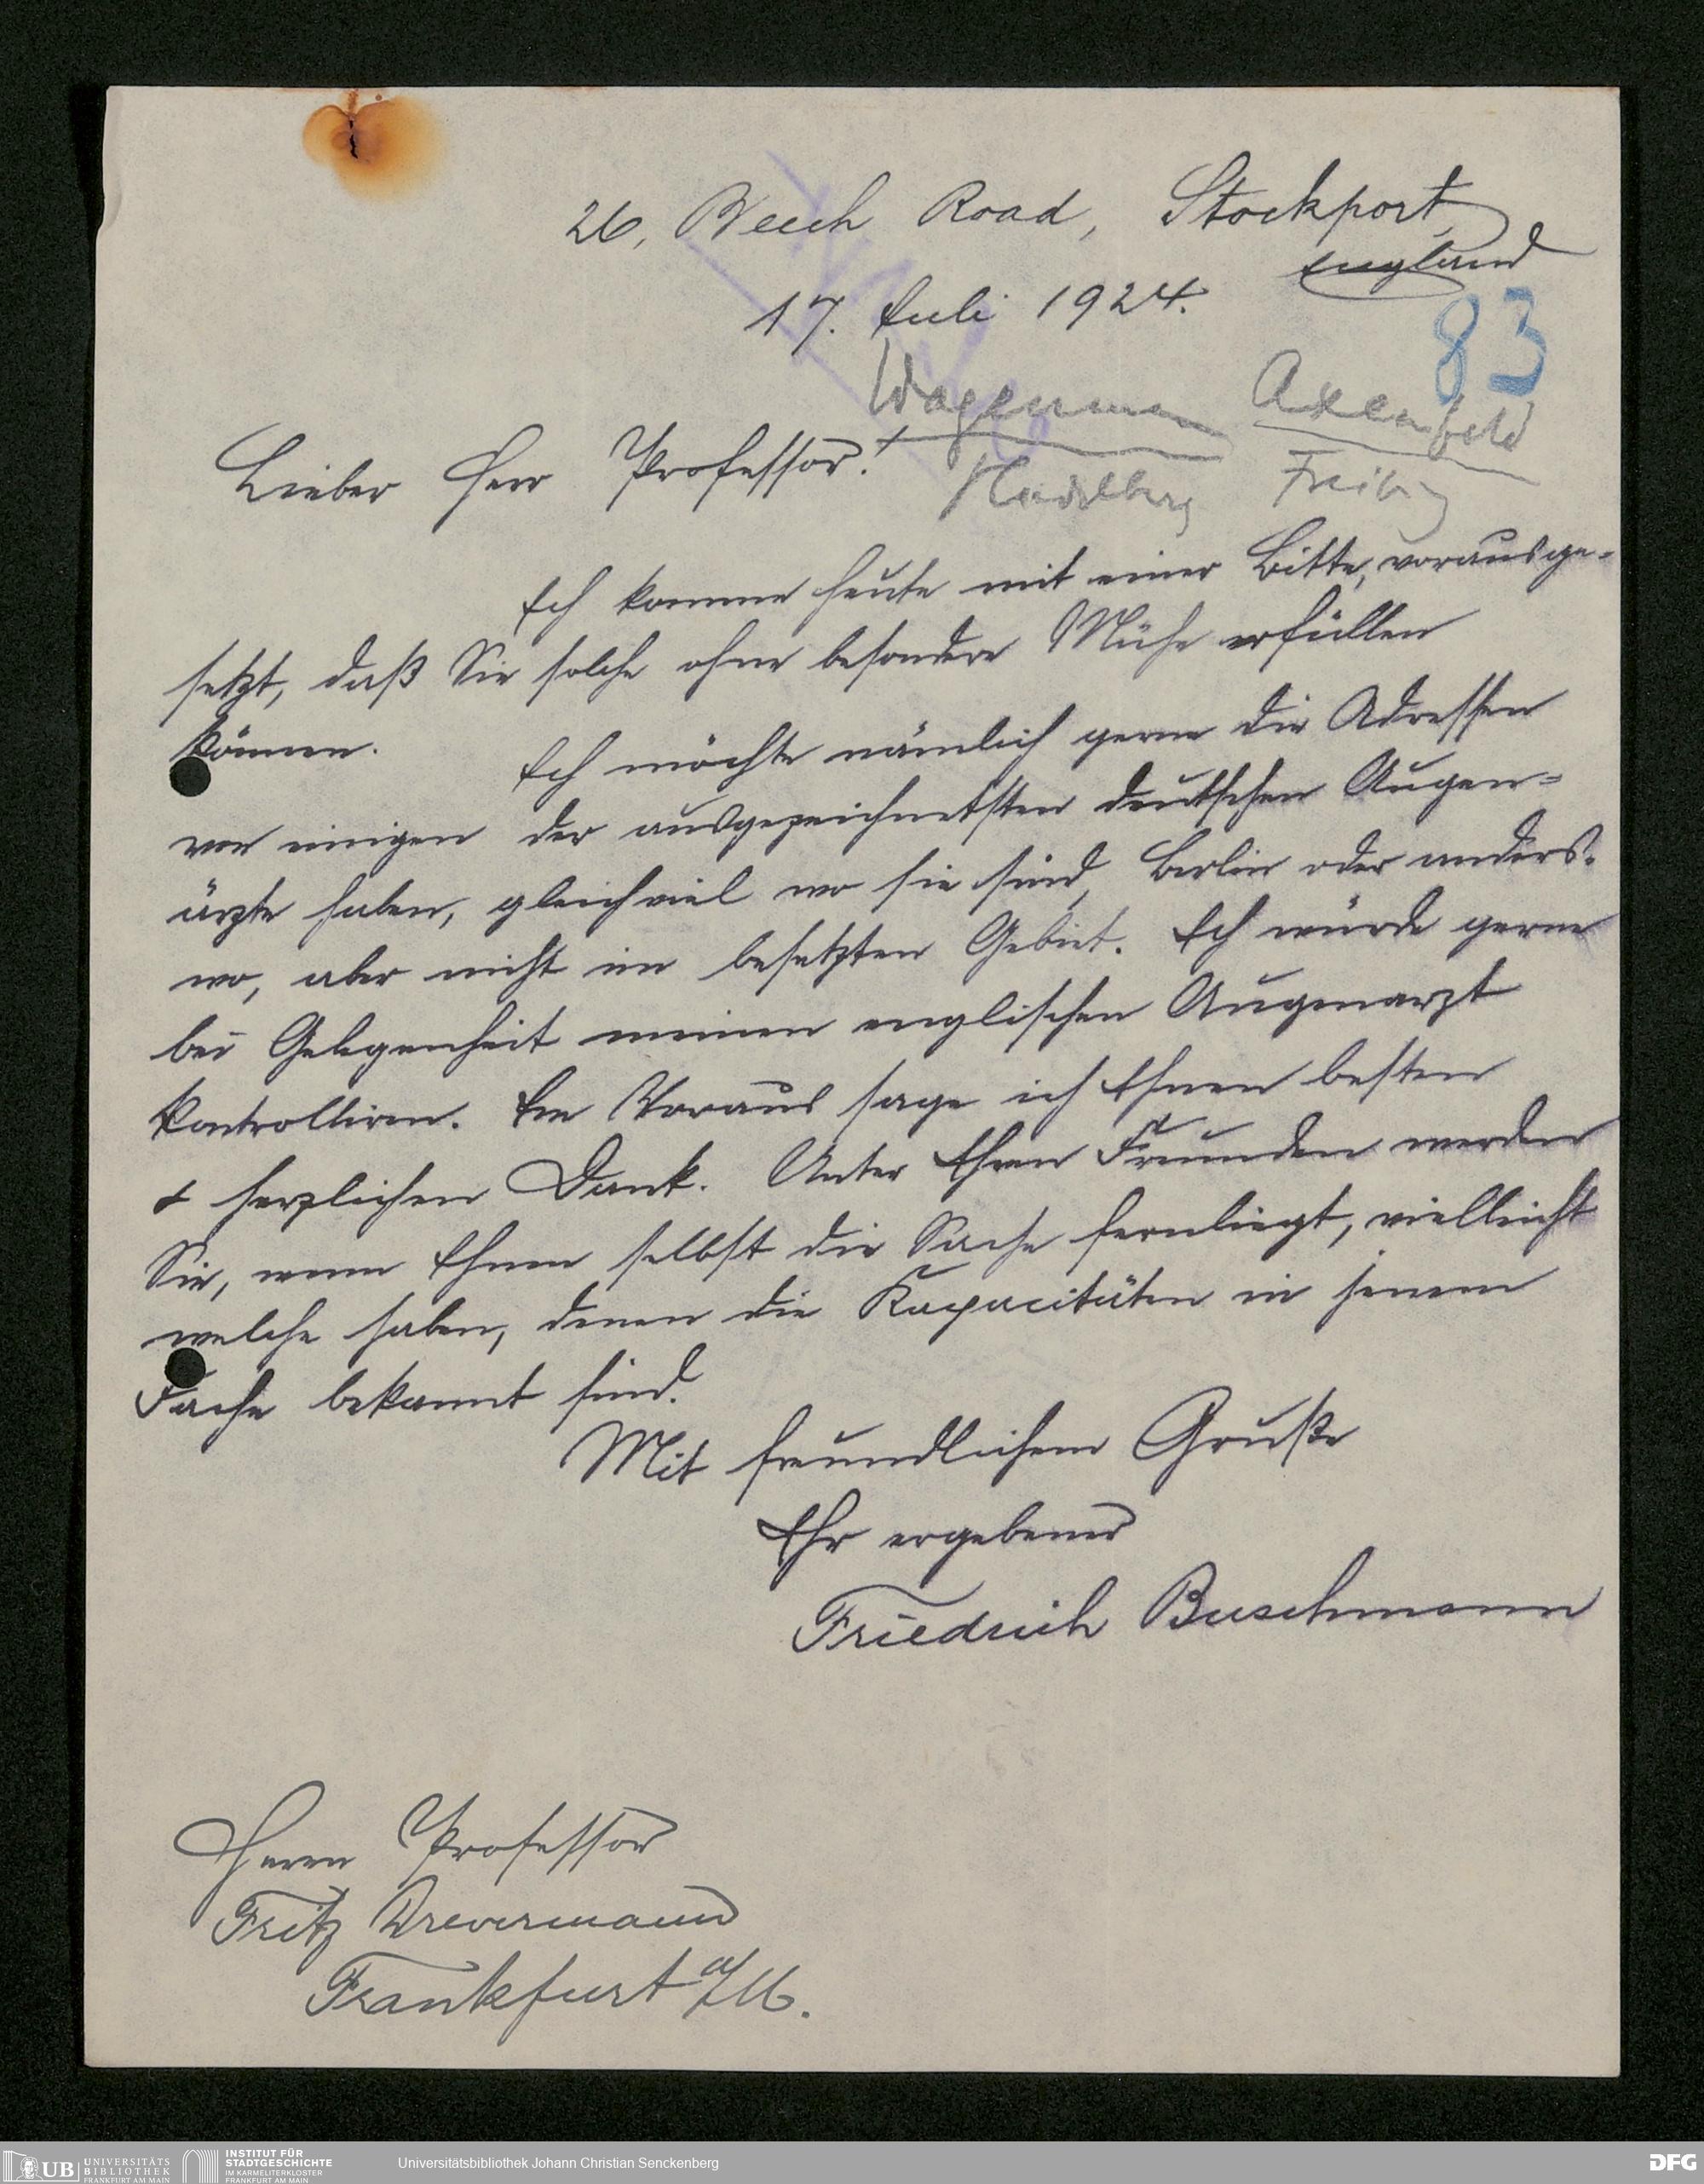 26, Beech Road, Stockport,
England
17. Juli 1924.
83
Wagenmann Axenfeld
Heidelberg Freibg
Lieber Herr Professor!
Ich komme heute mit einer Bitte, vorausge-
setzt, daß Sie solche ohne besondere Mühe erfüllen
können. Ich möchte nämlich gerne die Adressen
von einigen der ausgezeichnetsten deutschen Augen-
ärzte haben, gleichviel wo sie sind, Berlin oder anders-
wo, aber nicht im besetzten Gebiet. Ich würde gerne
bei Gelegenheit meinen englischen Augenarzt
kontrolliren. Im Voraus sage ich Ihnen besten
& herzlichen Dank. Unter Ihren Freunden werden
Sie, wenn Ihnen selbst die Sache fernliegt, vielleicht
welche haben, denen die Kapacitäten in jenem
Fache bekannt sind.
Mit freundlichem Gruße
Ihr ergebener
Friedrich Buschmann
Herrn Professor
Fritz Drevermann
Frankfurt a/M.
UB UNIVERSITÄTS
BIBLIOTHEK
FRANKFURT AM MAIN
INSTITUT FÜR
STADTGESCHICHTE
IM KARMELITERKLOSTER
FRANKFURT AM MAIN
Universitätsbibliothek Johann Christian Senckenberg
DFG